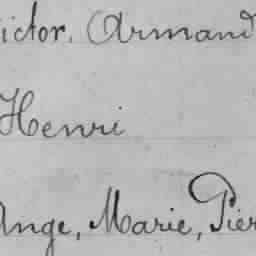 ictor, Armand
Henri
Ange, Marie, Pier